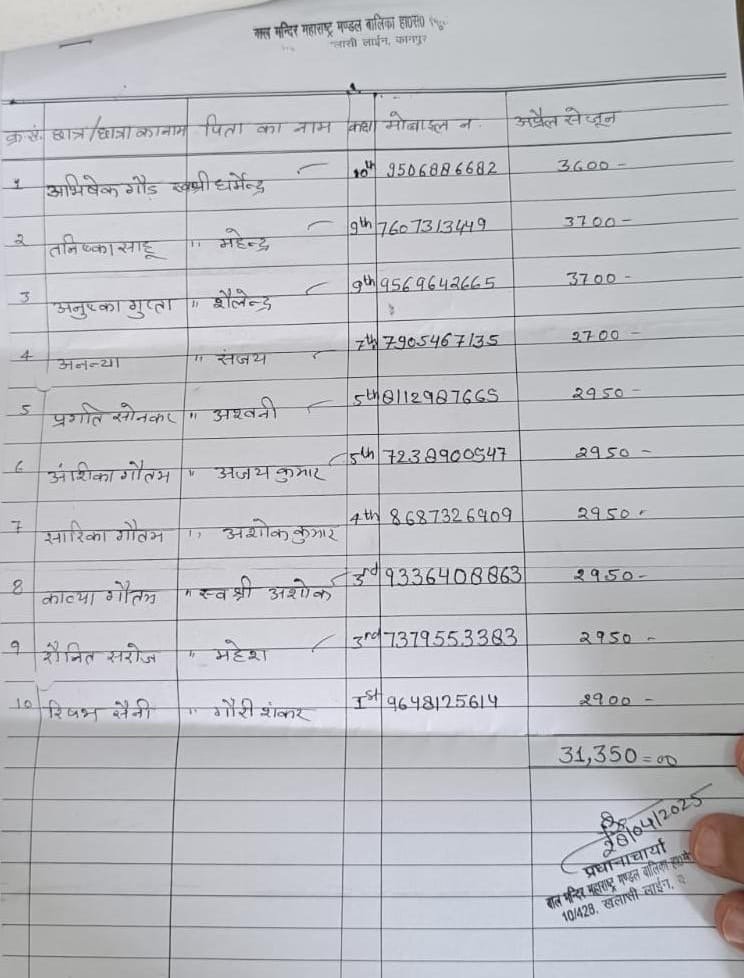 बाल मन्दिर महाराष्ट्र मण्डल बालिका हा०से०
खलासी लाईन, कानपुर
क्र.सं. छात्र/छात्रा का नाम पिता का नाम कक्षा मोबाइल न. अप्रैल से जून
1 अभिषेक गौड स्वश्री धर्मेन्द्र 10th 9506886682 3600-
2 तनिष्का साहू " महेन्द्र 9th 7607313449 3700-
3 अनुष्का गुप्ता " शैलेन्द्र 9th 9569642665 3700-
4 अनन्या " संजय 7th 7905467135 2700-
5 प्रगति सोनकर " अश्वनी 5th 8112987665 2950-
6 अंशिका गौतम " अजय कुमार 5th 7238900547 2950-
7 सारिका गौतम " अशोक कुमार 4th 8687326909 2950-
8 काव्या गौतम " स्व श्री अशोक 3rd 9336408863 2950-
9 रौनित सरोज " महेश 3rd 7379553383 2950-
10 रिषभ सैनी " गौरी शंकर 1st 9648125614 2900-
31,350=00
28/04/2025
प्रधानाचार्या
बाल मन्दिर महाराष्ट्र मण्डल बालिका हा०से०
10/428, खलासी लाईन,